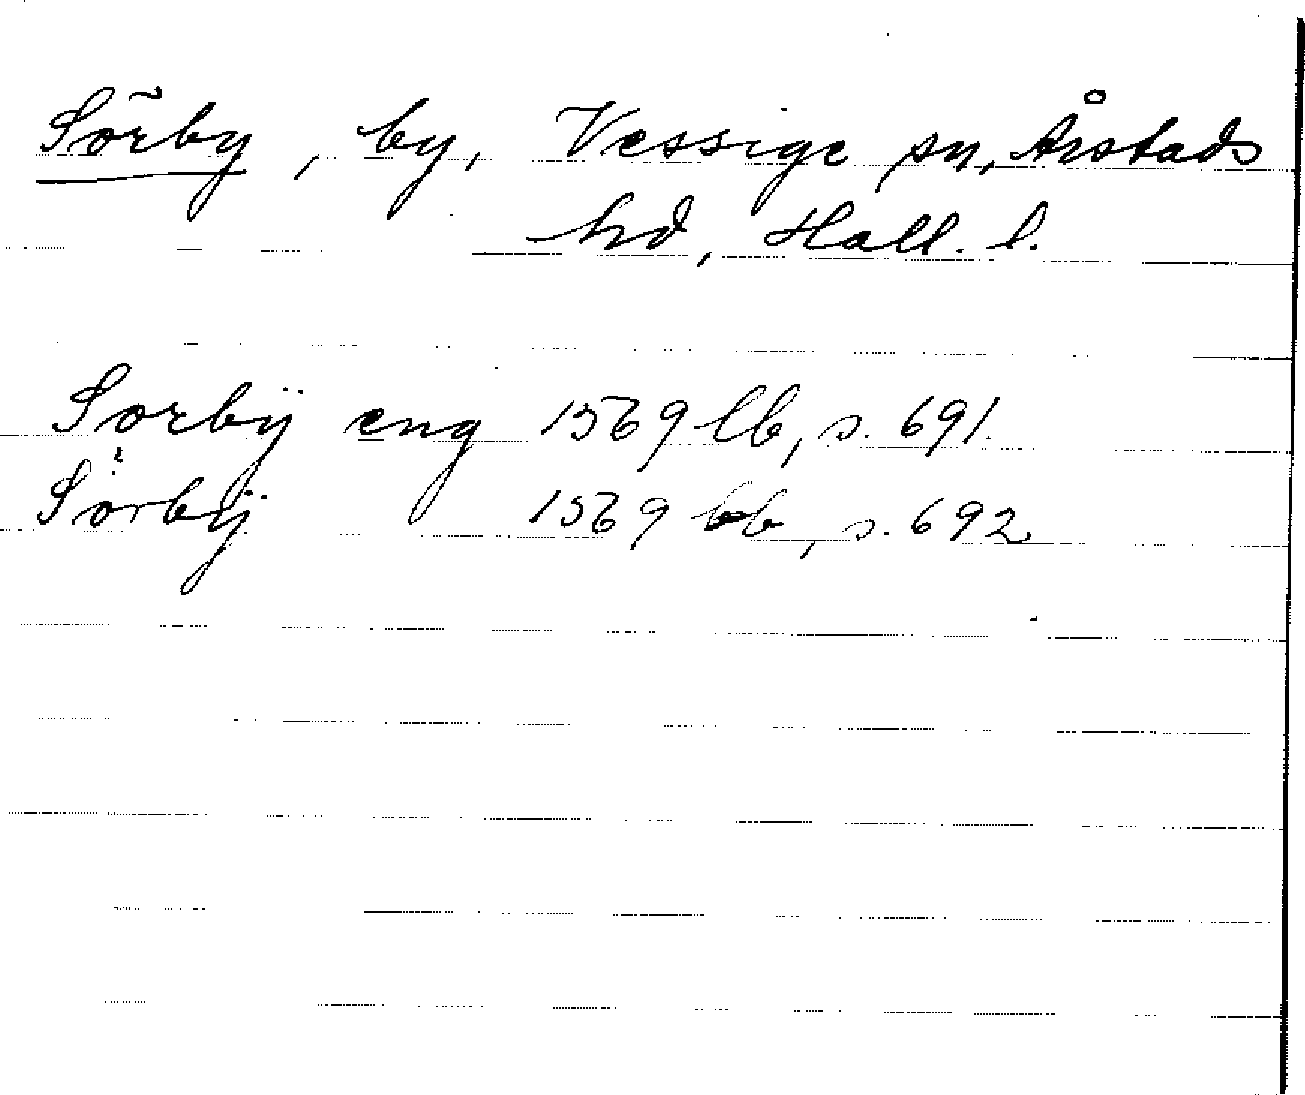 Sörby, by, Vessige sn, Årstads
hd, Hall. l.
Sorbÿ eng 1569 lb, s. 691.
Sörbÿ 1569 lb, s. 692